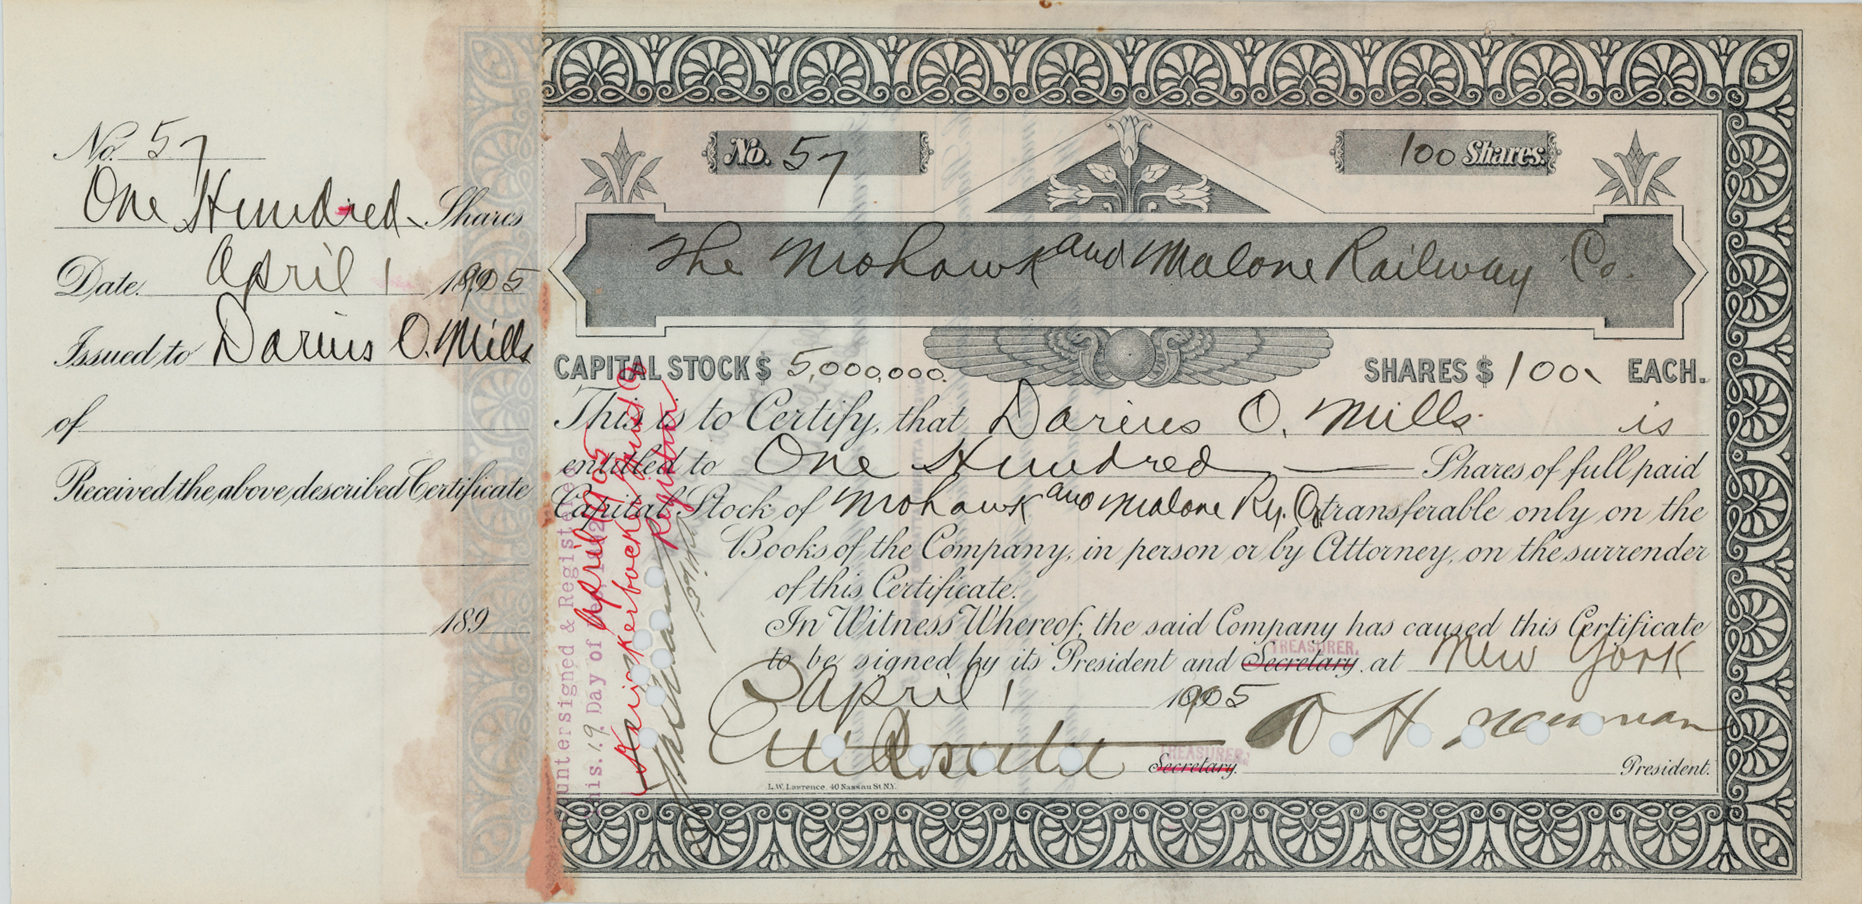 No. 57
One Hundred Shares
Date. April 1 1905
Issued to Darius O. Mills
of
Received the above described Certificate
189
No. 57
100 Shares.
The Mohawk and Malone Railway Co.
CAPITAL STOCK $ 5,000,000.
SHARES $ 100. EACH.
This is to Certify, that Darius O. Mills is
entitled to One Hundred Shares of full paid
Capital Stock of Mohawk and Malone Ry. Co. transferable only on the
Books of the Company, in person or by Attorney, on the surrender
of this Certificate.
In Witness Whereof, the said Company has caused this Certificate
TREASURER.
to be signed by its President and Secretary. at New York
April 1 1905
TREASURER.
Secretary.
D H Newman
President.
L.W. Lawrence. 40 Nassau St. N.Y.
Countersigned & Registered
this 19 Day of April 1905
Knickerbocker Trust Co
Registrar.